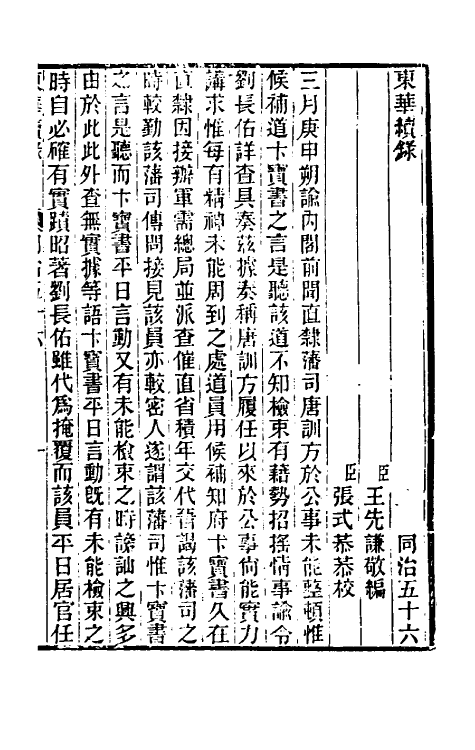 東華續錄
同治五十六
臣王先謙敬編
臣張式恭恭校
三月庚申朔諭內閣前聞直隸藩司唐訓方於公事未能整頓惟
候補道卞寶書之言是聽該道不知檢束有藉勢招搖情事諭令
劉長佑詳查具奏茲據奏稱唐訓方履任以來於公事尙能實力
講求惟每有精神未能周到之處道員用候補知府卞寶書久在
直隸因接辦軍需總局並派查催直省積年交代晉謁該藩司之
時較勤該藩司傳問接見該員亦較密人遂謂該藩司惟卞寶書
之言是聽而卞寶書平日言動又有未能檢束之時謗訕之興多
由於此此外查無實據等語卞寶書平日言動旣有未能檢束之
時自必確有實蹟昭著劉長佑雖代爲掩覆而該員平日居官任
東華續錄 同治五十六 一